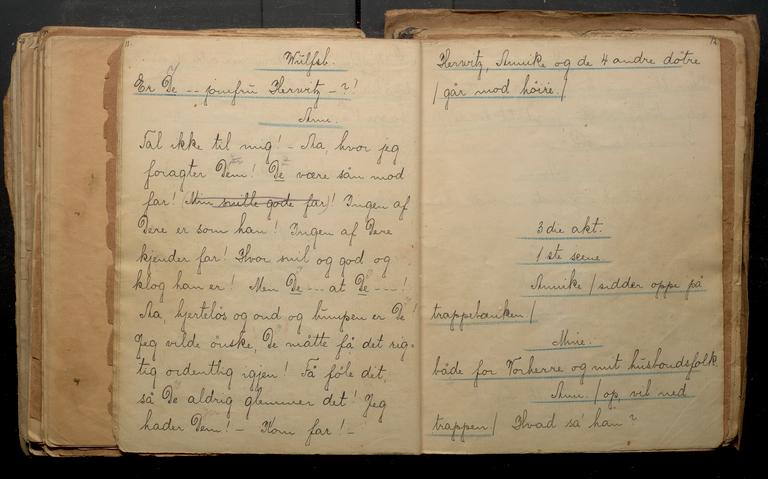 11
Wulfsb.
Er De -- jomfru Hervitz -?!
Ann.
Tal ikke til mig! - Aa, hvor jeg
foragter Dem! De være sån mod
far! (Min snille gode far)! Ingen af
Dere er som han! Ingen af Dere
kjender far! Hvor snil og god og
klog han er! Men De --- at De ---!
Aa, hjerteløs og ond og lumpen er De!
Jeg vilde ønske, De måtte få det rig-
tig ordentlig igjen! Få føle det,
så De aldrig glemmer det! Jeg
hader Dem! - Kom far! -
12
Hervitz, Annike og de 4 andre døtre
/ går mod høire. /
3die akt.
1ste scene
Annike / sidder oppe på
trappebænken /
Mine.
både for Vorherre og mit husbondsfolk.
Ann. / op, vil ned
trappen / Hvad sa' han?